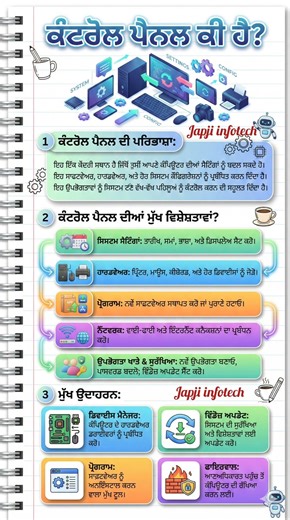 ਕੰਟਰੋਲ ਪੈਨਲ ਕੀ ਹੈ?
SYSTEM
SETTINGS
CONFIG
CONFIG
Japji infotech
1 ਕੰਟਰੋਲ ਪੈਨਲ ਦੀ ਪਰਿਭਾਸ਼ਾ:
ਇਹ ਇੱਕ ਕੇਂਦਰੀ ਸਥਾਨ ਹੈ ਜਿੱਥੋਂ ਤੁਸੀਂ ਆਪਣੇ ਕੰਪਿਊਟਰ ਦੀਆਂ ਸੈਟਿੰਗਾਂ ਨੂੰ ਬਦਲ ਸਕਦੇ ਹੋ।
ਇਹ ਸਾਫਟਵੇਅਰ, ਹਾਰਡਵੇਅਰ, ਅਤੇ ਹੋਰ ਸਿਸਟਮ ਕੌਂਫਿਗਰੇਸ਼ਨਾਂ ਨੂੰ ਪ੍ਰਬੰਧਿਤ ਕਰਨ ਦਿੰਦਾ ਹੈ।
ਇਹ ਉਪਭੋਗਤਾਵਾਂ ਨੂੰ ਸਿਸਟਮ ਦੇ ਵੱਖ-ਵੱਖ ਪਹਿਲੂਆਂ ਨੂੰ ਕੰਟਰੋਲ ਕਰਨ ਦੀ ਸਹੂਲਤ ਦਿੰਦਾ ਹੈ।
2 ਕੰਟਰੋਲ ਪੈਨਲ ਦੀਆਂ ਮੁੱਖ ਵਿਸ਼ੇਸ਼ਤਾਵਾਂ?
ਸਿਸਟਮ ਸੈਟਿੰਗਾਂ: ਤਾਰੀਖ, ਸਮਾਂ, ਭਾਸ਼ਾ, ਅਤੇ ਡਿਸਪਲੇਅ ਸੈਟ ਕਰੋ।
ਹਾਰਡਵੇਅਰ: ਪ੍ਰਿੰਟਰ, ਮਾਊਸ, ਕੀਬੋਰਡ, ਅਤੇ ਹੋਰ ਡਿਵਾਈਸਾਂ ਨੂੰ ਜੋੜੋ।
ਪ੍ਰੋਗਰਾਮ: ਨਵੇਂ ਸਾਫਟਵੇਅਰ ਸਥਾਪਤ ਕਰੋ ਜਾਂ ਪੁਰਾਣੇ ਹਟਾਓ।
ਨੈੱਟਵਰਕ: ਵਾਈ-ਫਾਈ ਅਤੇ ਇੰਟਰਨੈੱਟ ਕਨੈਕਸ਼ਨਾਂ ਦਾ ਪ੍ਰਬੰਧਨ
ਕਰੋ।
ਉਪਭੋਗਤਾ ਖਾਤੇ & ਸੁਰੱਖਿਆ: ਨਵੇਂ ਉਪਭੋਗਤਾ ਬਣਾਓ,
ਪਾਸਵਰਡ ਬਦਲੋ; ਵਿੰਡੋਜ਼ ਅਪਡੇਟ ਸੈੱਟ ਕਰੋ।
3 ਮੁੱਖ ਉਦਾਹਰਨ:
Japji infotech
ਡਿਵਾਈਸ ਮੈਨੇਜਰ:
ਕੰਪਿਊਟਰ ਦੇ ਹਾਰਡਵੇਅਰ
ਡਰਾਈਵਰਾਂ ਨੂੰ ਪ੍ਰਬੰਧਿਤ
ਕਰੋ।
ਵਿੰਡੋਜ਼ ਅਪਡੇਟ:
ਸਿਸਟਮ ਦੀ ਸੁਰੱਖਿਆ
ਅਤੇ ਵਿਸ਼ੇਸ਼ਤਾਵਾਂ ਲਈ
ਅਪਡੇਟ ਕਰੋ।
ਪ੍ਰੋਗਰਾਮ:
ਸਾਫ਼ਟਵੇਅਰ ਨੂੰ
ਅਨਇੰਸਟਾਲ ਕਰਨ
ਵਾਲਾ ਮੁੱਖ ਟੂਲ।
ਫਾਇਰਵਾਲ:
ਅਣਅਧਿਕਾਰਤ ਪਹੁੰਚ ਤੋਂ
ਕੰਪਿਊਟਰ ਦੀ ਰੱਖਿਆ
ਕਰਨ ਲਈ।